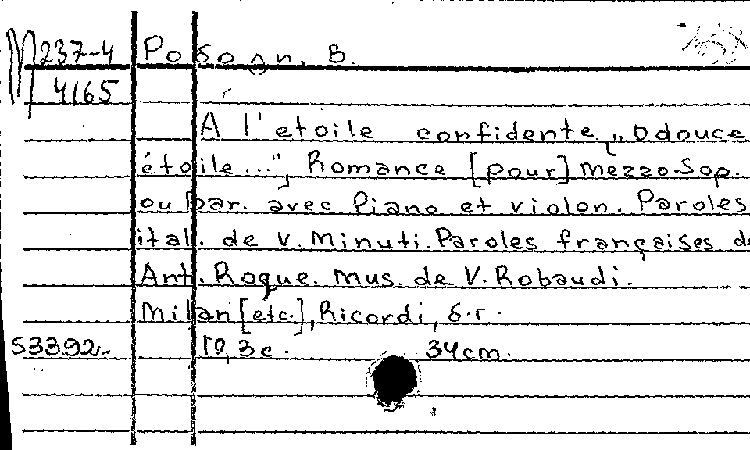 M 237-4
4165
A l'etoile confidente „O douce
étoile...", Romance [pour] Mezzo-Sop.
ou bar. avec Piano et violon. Paroles
ital. de V. Minuti. Paroles françaises de
Ant. Roque. Mus. de V. Robaudi.
Milan [etc.], Ricordi, s.r.
53392.- 10,3c. 34cm.